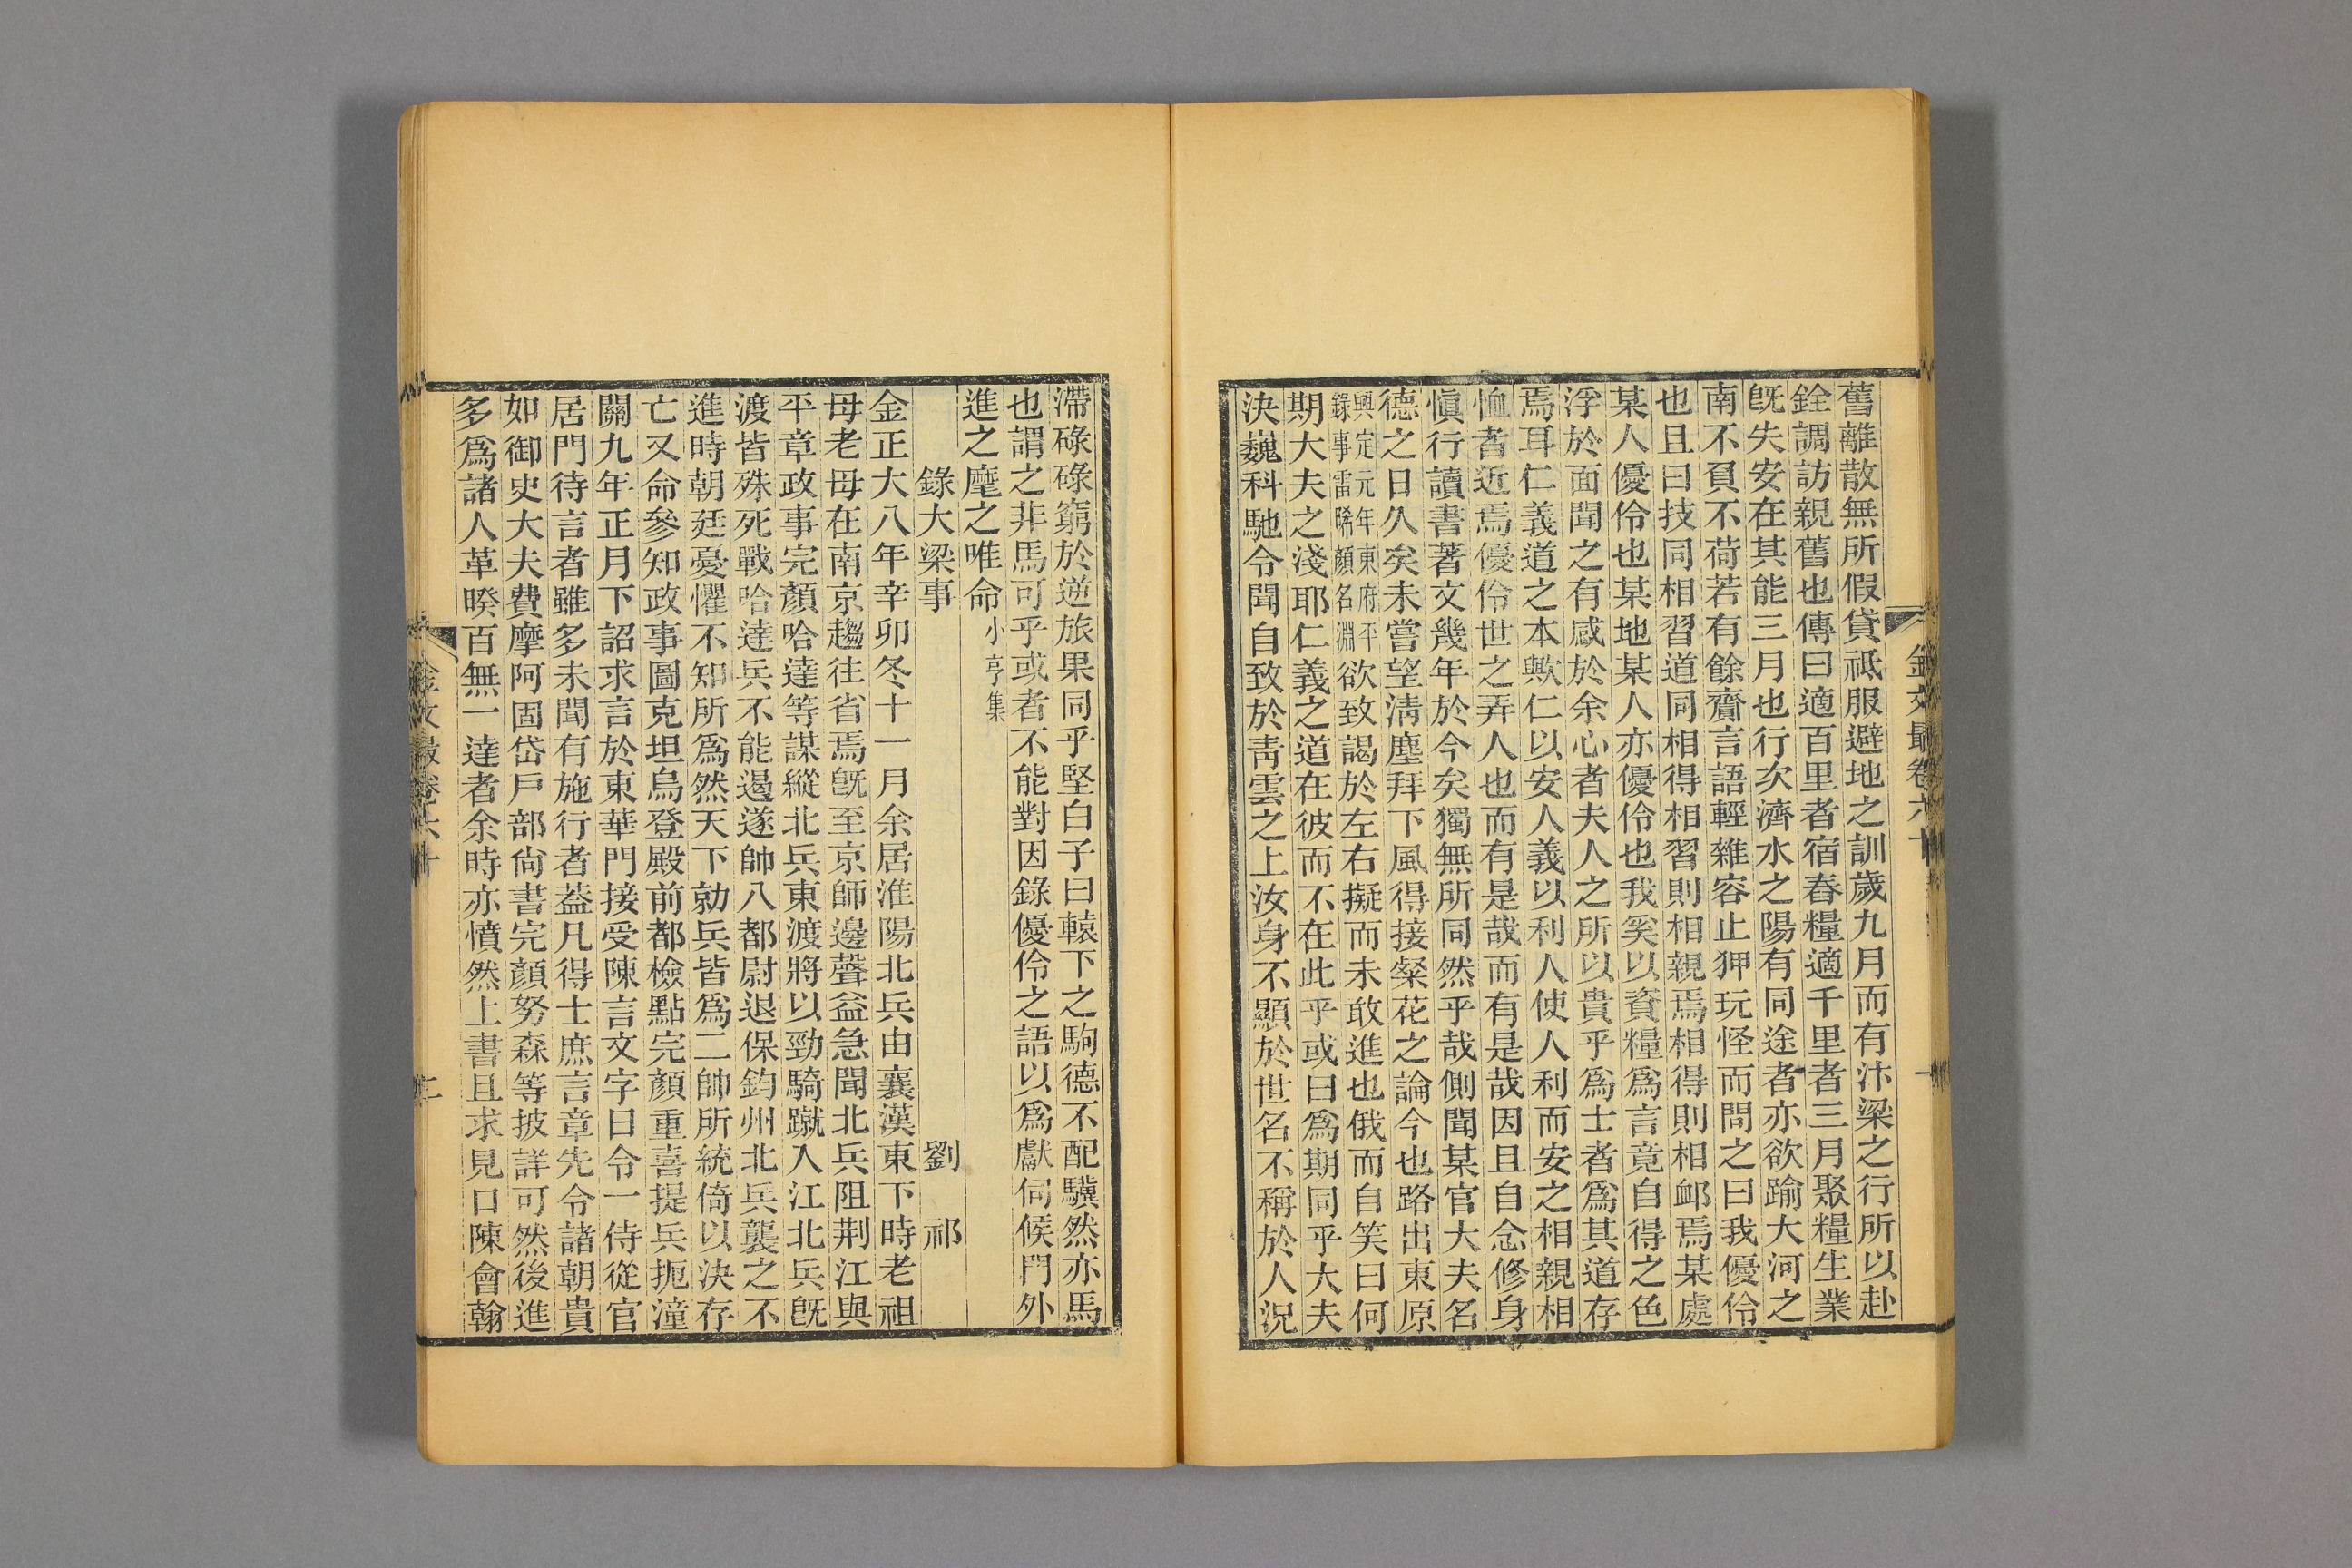 舊離散無所假貸祗服避地之訓歲九月而有汴梁之行所以赴
銓調訪親舊也傳曰適百里者宿舂糧適千里者三月聚糧生業
旣失安在其能三月也行次濟水之陽有同途者亦欲踰大河之
南不負不荷若有餘齎言語輕雜容止狎玩怪而問之曰我優伶
也且曰技同相習道同相得相習則相親焉相得則相衈焉某處
某人優伶也某地某人亦優伶也我奚以資糧爲言竟自得之色
浮於面聞之有感於余心者夫人之所以貴乎爲士者爲其道存
焉耳仁義道之本歟仁以安人義以利人使人利而安之相親相
恤者近焉優伶世之弄人也而有是哉而有是哉因且自念修身
愼行讀書著文幾年於今矣獨無所同然乎哉側聞某官大夫名
德之日久矣未嘗望淸塵拜下風得接粲花之論今也路出東原
興定元年東府平
錄事雷晞顏名淵
欲致謁於左右擬而未敢進也俄而自笑曰何
期大夫之淺耶仁義之道在彼而不在此乎或曰爲期同乎大夫
決巍科馳令聞自致於靑雲之上汝身不顯於世名不稱於人況
金文最卷六十
一
滯碌碌窮於逆旅果同乎堅白子曰轅下之駒德不配驥然亦馬
也謂之非馬可乎或者不能對因錄優伶之語以爲獻伺候門外
進之麾之唯命小亨集
錄大梁事 劉祁
金正大八年辛卯冬十一月余居淮陽北兵由襄漢東下時老祖
母老母在南京趨往省焉旣至京師邊聲益急聞北兵阻荆江與
平章政事完顏哈達等謀縱北兵東渡將以勁騎蹴入江北兵旣
渡皆殊死戰哈達兵不能遏遂帥八都尉退保鈞州北兵襲之不
進時朝廷憂懼不知所爲然天下勍兵皆爲二帥所統倚以決存
亡又命參知政事圖克坦烏登殿前都檢點完顏重喜提兵扼潼
關九年正月下詔求言於東華門接受陳言文字日令一侍從官
居門待言者雖多未聞有施行者蓋凡得士庶言章先令諸朝貴
如御史大夫費摩阿固岱戶部尙書完顏努森等披詳可然後進
多爲諸人革暌百無一達者余時亦憤然上書且求見口陳會翰
金文最卷六十
二